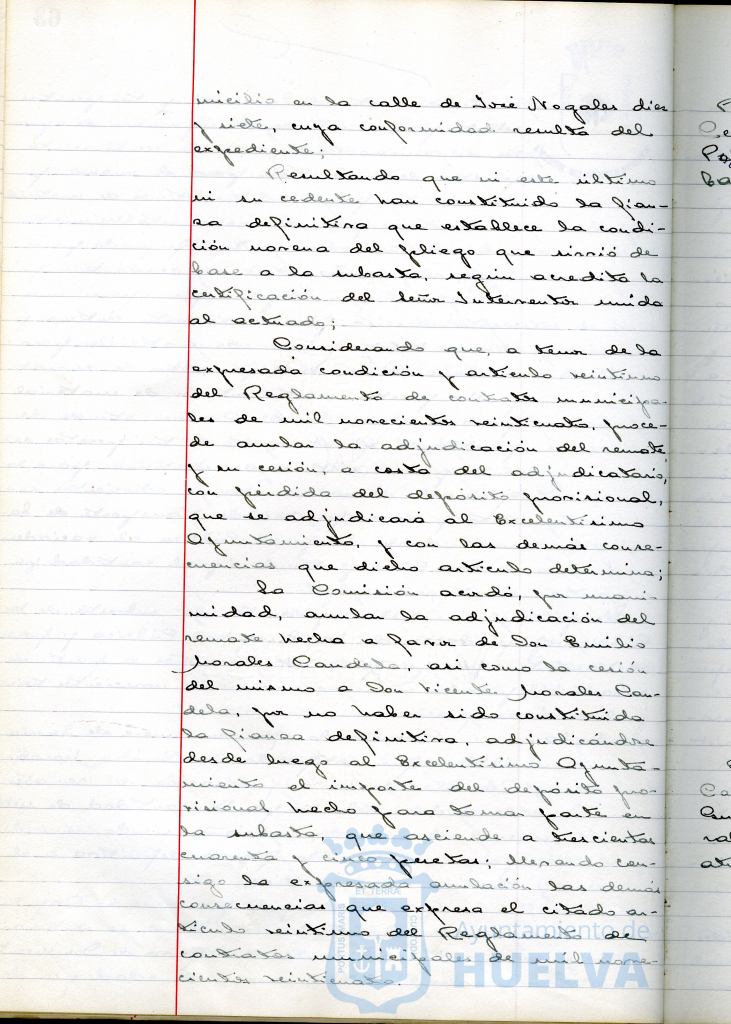 micilio en la calle de José Nogales diez
y siete, cuya conformidad resulta del
expediente;
Resultando que ni este último
ni su cedente han constituido la fian-
za definitiva que establece la condi-
ción novena del pliego que sirvió de
base a la subasta, según acredita la
certificación del Señor Interventor unida
al actuado;
Considerando que, a tenor de la
expresada condición y artículo veintiuno
del Reglamento de contratos municipa-
les de mil novecientos veinticuatro, proce-
de anular la adjudicación del remate,
y su cesión, a costa del adjudicatario,
con pérdida del depósito provisional,
que se adjudicará al Excelentísimo
Ayuntamiento, y con las demás conse-
cuencias que dicho artículo determina;
La Comisión acordó, por unani-
midad, anular la adjudicación del
remate hecha a favor de Don Emilio
Morales Candela, así como la cesión
del mismo a Don Vicente Morales Can-
dela, por no haber sido constituida
la fianza definitiva, adjudicándose
desde luego al Excelentísimo Ayunta-
miento el importe del depósito pro-
visional hecho para tomar parte en
la subasta, que asciende a trescientas
cuarenta y cinco pesetas; llevando con-
sigo la expresada anulación las demás
consecuencias que expresa el citado ar-
tículo veintiuno del Reglamento de
contratos municipales de mil nove-
cientos veinticuatro.
PORTUS MARIS
ET TERRAE
CUSTODIA
Ayuntamiento de
HUELVA